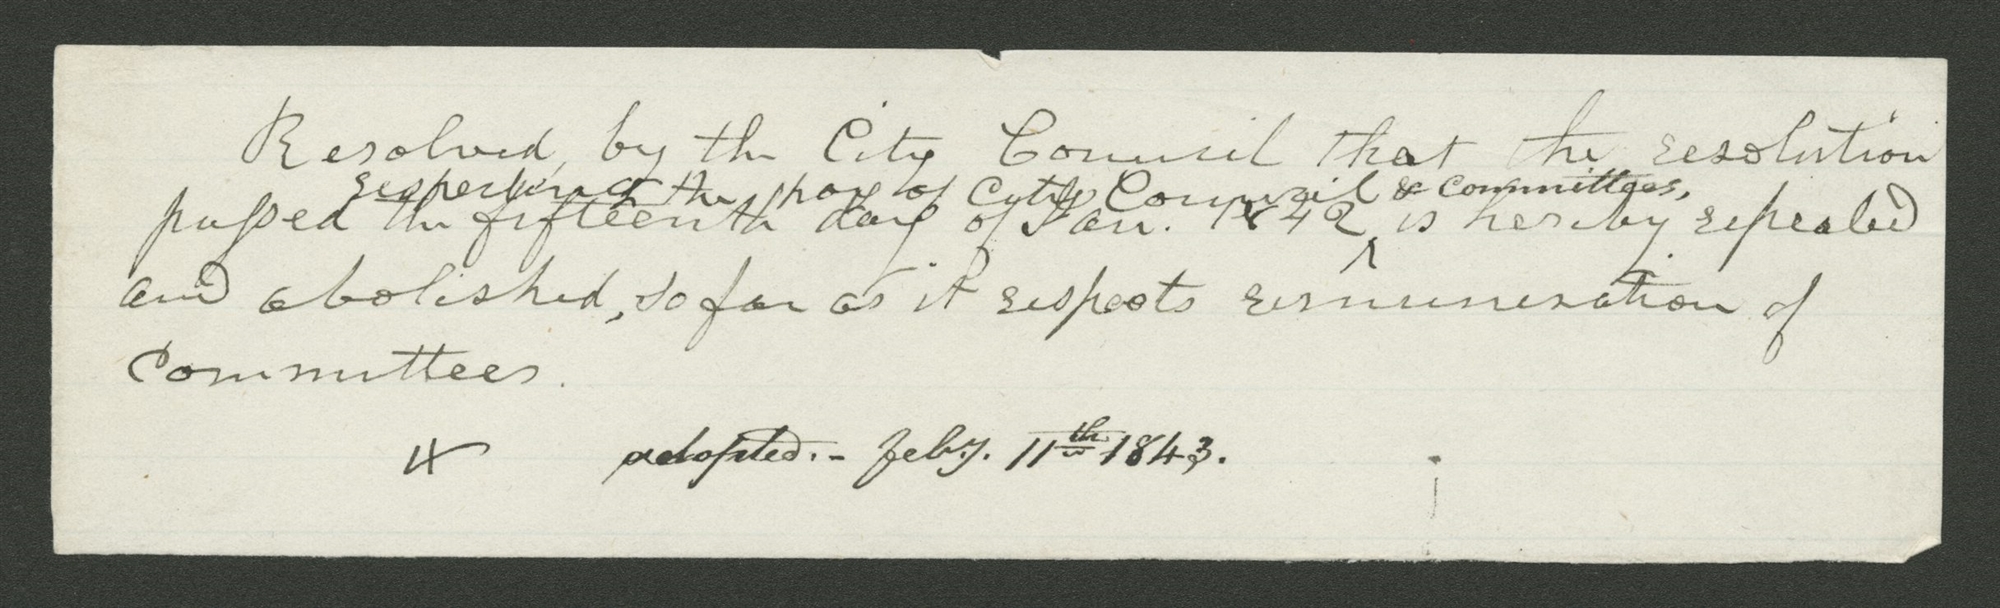 Resolved, by the City Council that the resolution
respecting the pay of City Council & committees,
passed the fifteenth day of Jan. 1842 ^ is hereby repealed
and abolished, so far as it respects remuneration of
Committees.
adopted.- Feby. 11th 1843.